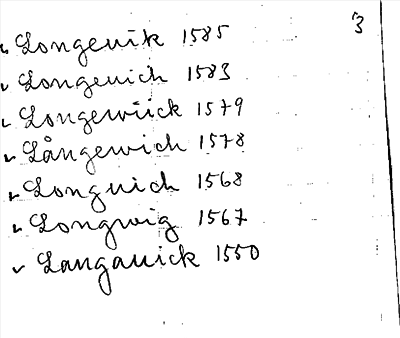 3
Longeuik 1585
Longeuich 1583
Longewiick 1579
Långewich 1578
Longuich 1568
Longwig 1567
Langauick 1550